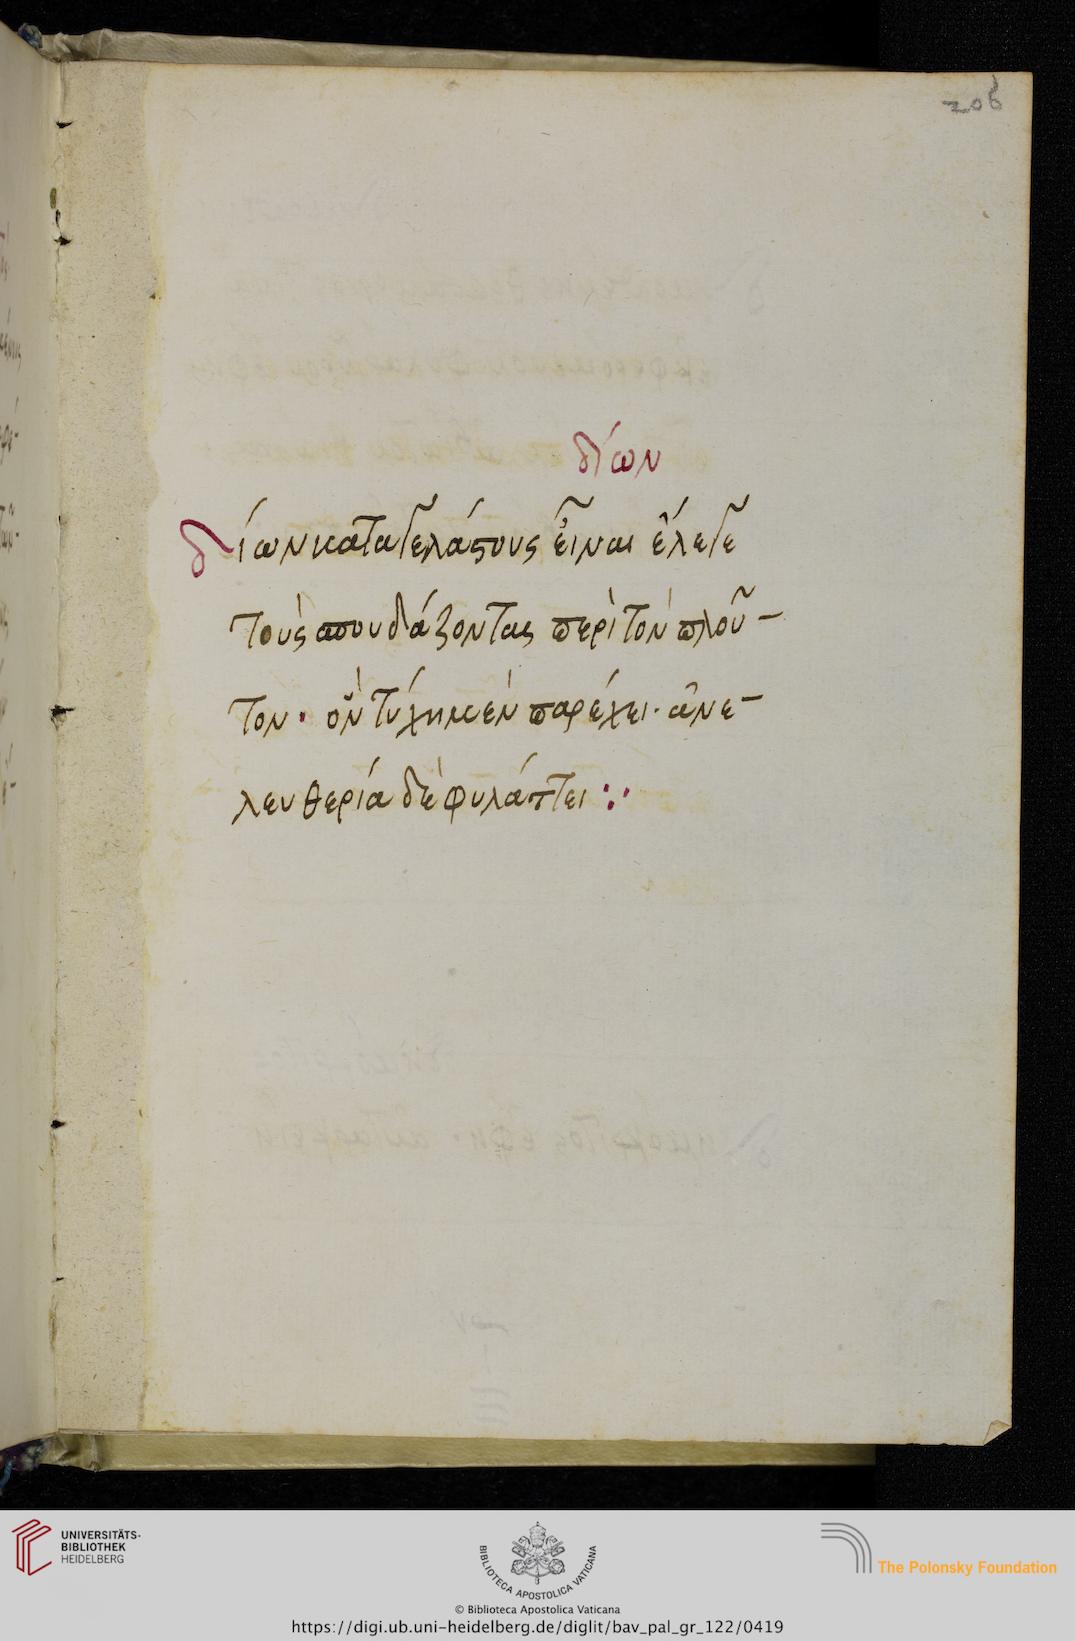 206
δίων
δίων καταγελάστους εἶναι ἔλεγε
τοὺς σπουδάζοντας περὶ τὸν πλοῦ-
τον· ὃν τύχη μὲν παρέχει· ἀνε-
λευθερία δὲ φυλάττει :·
UNIVERSITÄTS-
BIBLIOTHEK
HEIDELBERG
BIBLIOTECA APOSTOLICA VATICANA
The Polonsky Foundation
© Biblioteca Apostolica Vaticana
https://digi.ub.uni-heidelberg.de/diglit/bav_pal_gr_122/0419